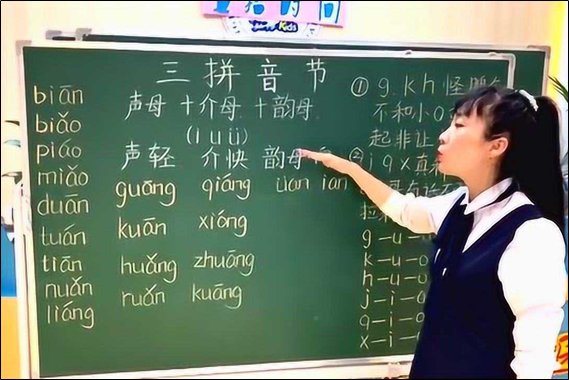 时间
Kids
三拼音节
biān
biǎo
piáo
miǎo
duān
tuán
tiān
nuǎn
liáng
声母 +介母 +韵母
(i u ü)
声轻 介快 韵母
guāng qiáng üan ian
kuān xióng
huǎng zhuāng
ruǎn kuāng
① g. k h 怪
不和小
起非让
② j q x 真
g—u—o
k—u—o
h—u—o
j—i—
q—i—
x—i—